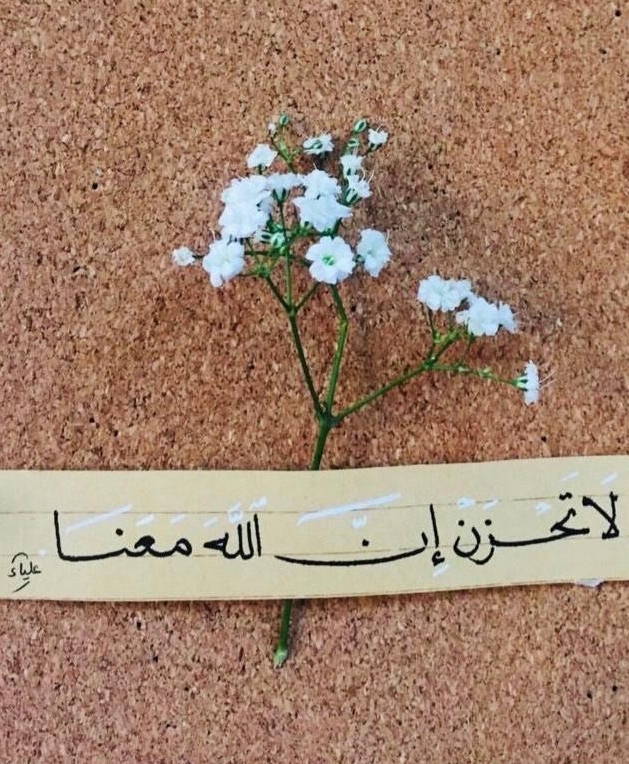 لَا تَحْزَنْ إِنَّ اللَّهَ مَعَنَا
علياء